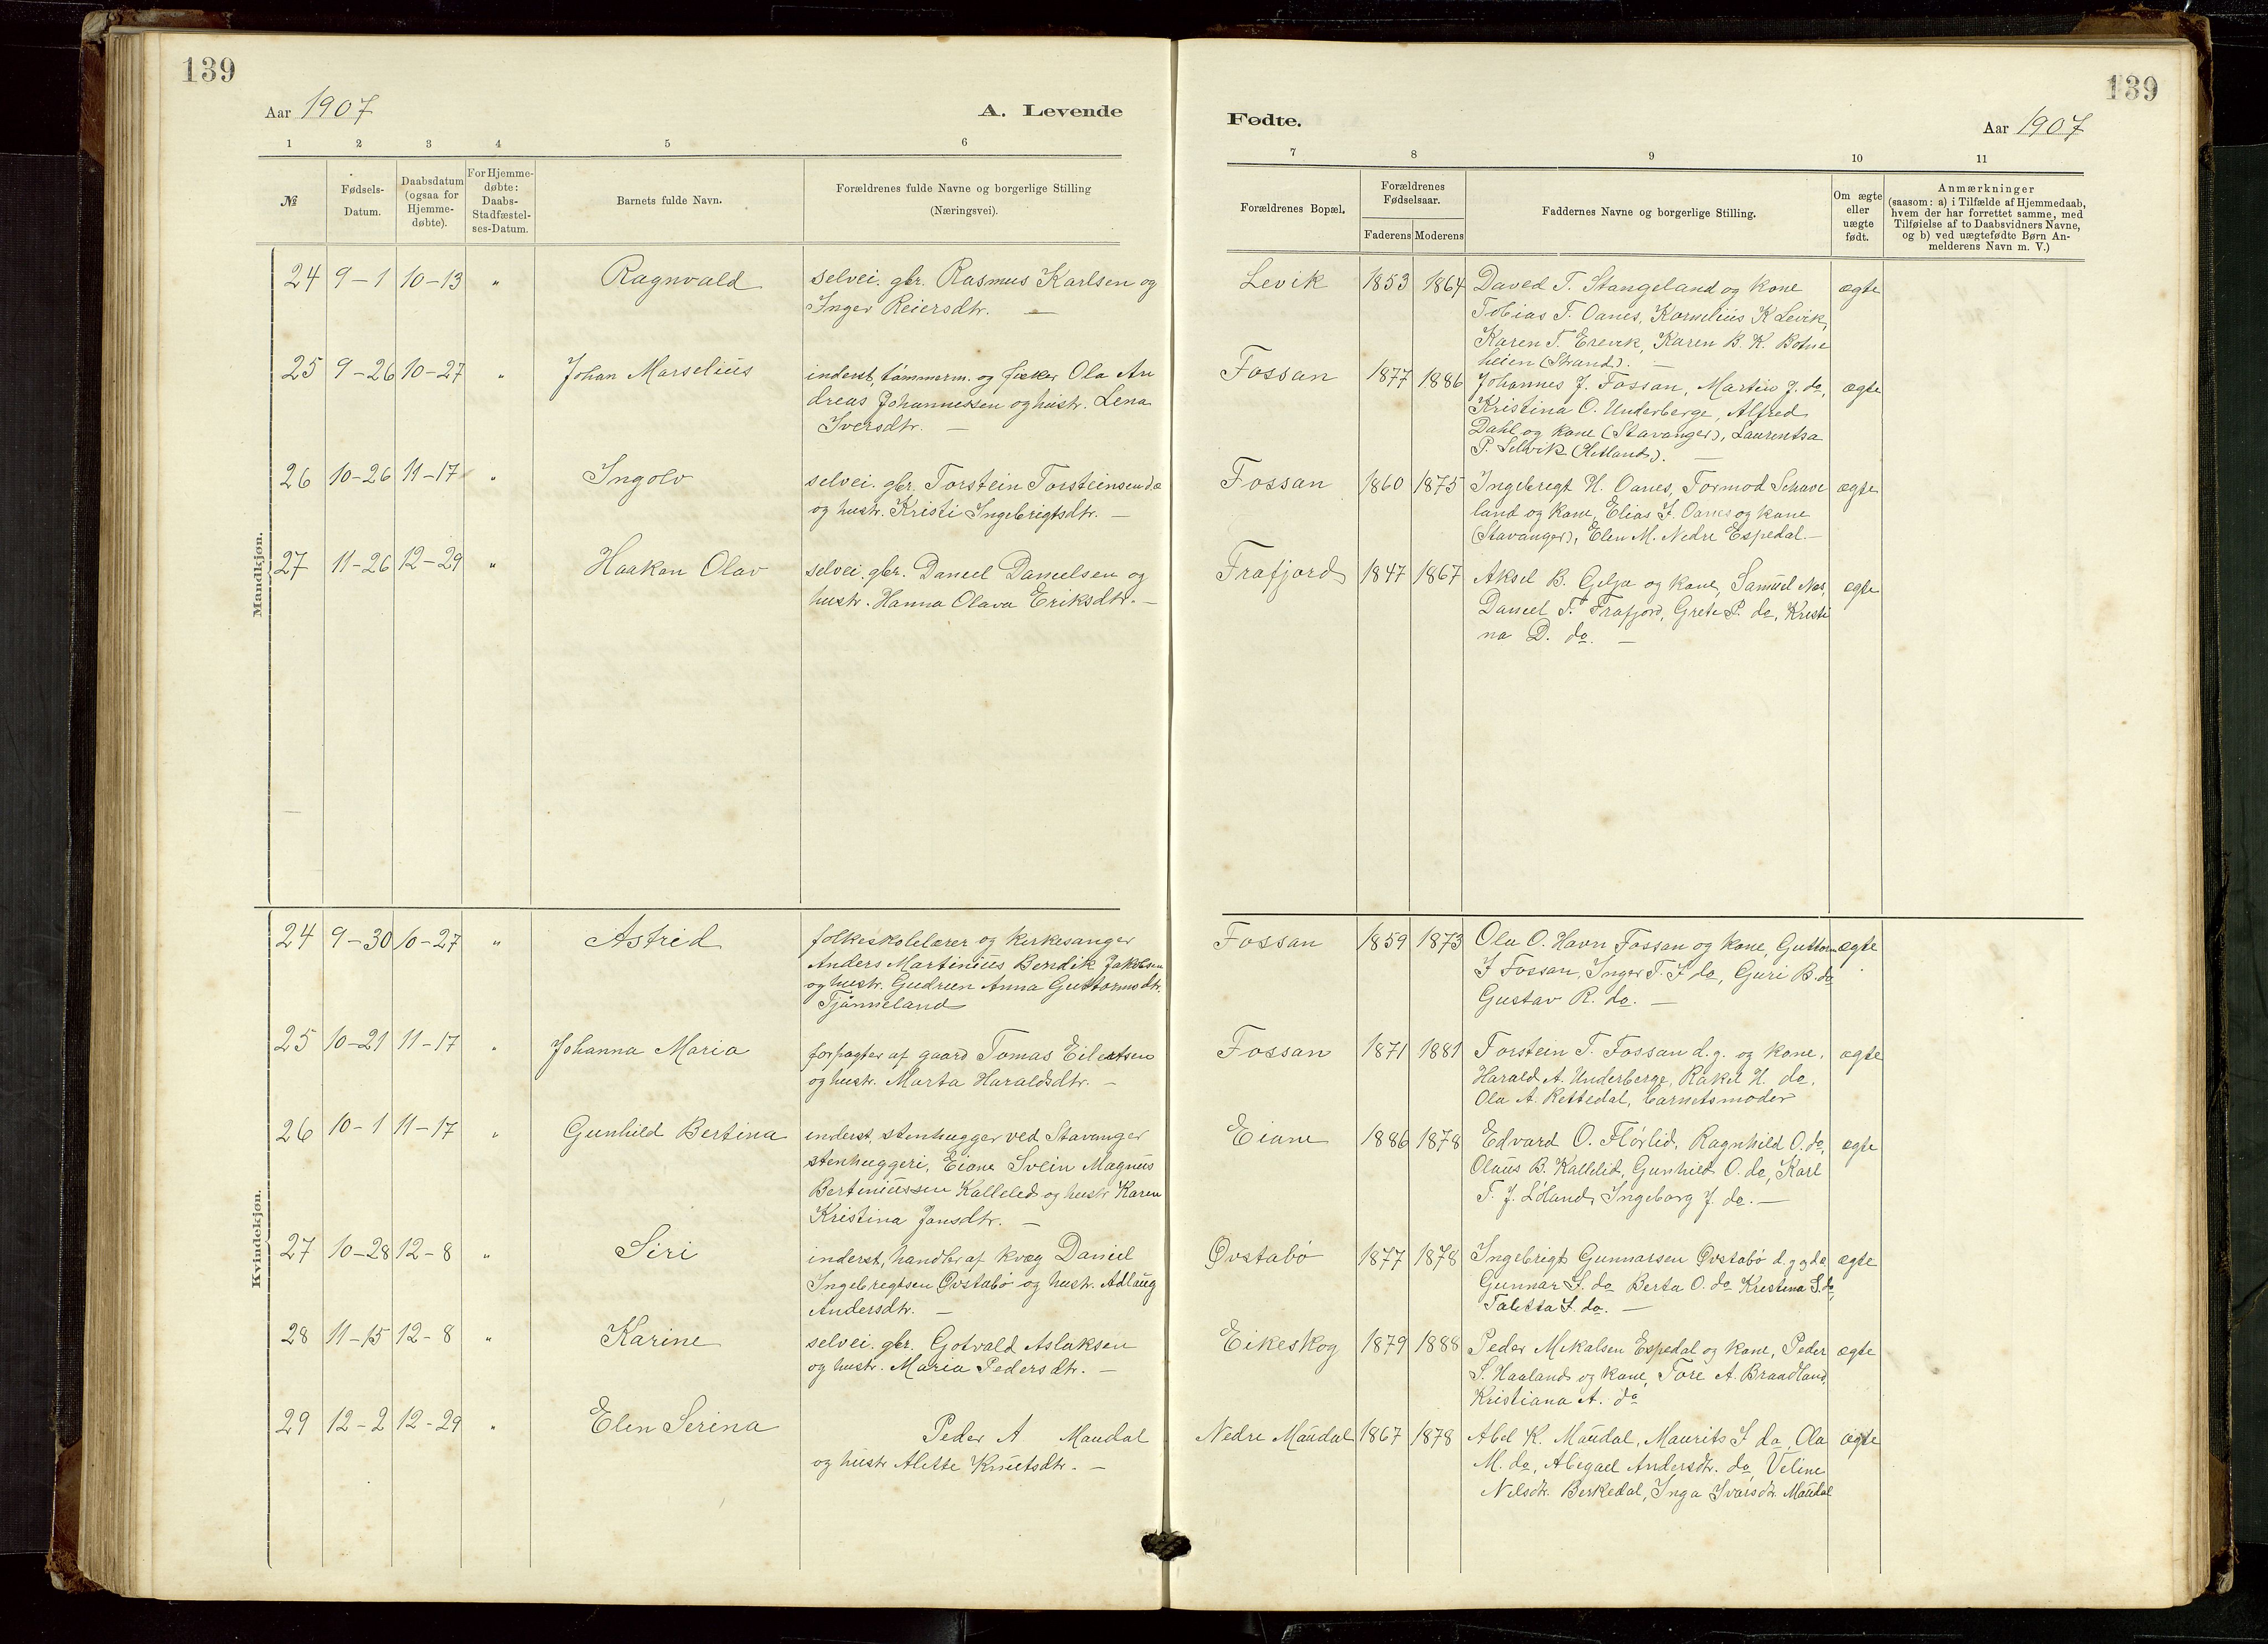 139
Aar 1907
A. Levende
1 2 3 4 5 6
№
Fødsels-
Datum.
Daabsdatum
(ogsaa for
Hjemme-
døbte).
For Hjemme-
døbte:
Daabs-
Stadfæstel-
ses-Datum.
Barnets fulde Navn.
Forældrenes fulde Navne og borgerlige Stilling
(Næringsvei).
Mandkjøn.
24 9-1 10-13 " Ragnvald selvei. gbr. Rasmus Karlsen og
Inger Reiersdtr. —
25 9-26 10-27 " Johan Marselius inderst, tømmerm. og fisker Ola An
dreas Johannessen og hustr. Lena
Iversdtr. —
26 10-26 11-17 " Ingolv selvei. gbr. Torstein Torsteinsen d.e.
og hustr. Kristi Ingebrigtsdtr. —
27 11-26 12-29 " Haakon Olav selvei. gbr. Daniel Danielsen og
hustr. Hanna Olava Eriksdtr. —
Kvindekjøn.
24 9-30 10-27 " Astrid folkeskolelærer og kirkesanger
Anders Martinius Bendik Jakobsen
og hustr. Gudrun Anna Guttormsdtr.
Tjønneland
25 10-21 11-17 " Johanna Maria forpagter af gaard Tomas Eilertsen
og hustr. Marta Haraldsdtr. —
26 10-1 11-17 " Gunhild Bertina inderst, stenhugger ved Stavanger
stenhuggeri, Eiane Svein Magnus
Bertiniussen Kallelid og hustr. Karen
Kristina Jonsdtr. —
27 10-28 12-8 " Siri inderst, handler af kvæg Daniel
Ingebregtsen Øvstabø og hustr. Adlaug
Andersdtr. —
28 11-15 12-8 " Karine selvei. gbr. Gotvald Aslaksen
og hustr. Maria Pedersdtr. —
29 12-2 12-29 " Elen Serina Peder A Maudal
og hustr Alette Knutsdtr. —
139
Fødte.
Aar 1907
7 8 9 10 11
Forældrenes Bopæl.
Forældrenes
Fødselsaar.
Faderens Moderens
Faddernes Navne og borgerlige Stilling.
Om ægte
eller
uægte
født.
Anmærkninger
(saasom: a) i Tilfælde af Hjemmedaab,
hvem der har forrettet samme, med
Tilføielse af to Daabsvidners Navne,
og b) ved uægtefødte Børn An-
melderens Navn m. V.)
Levik 1853 1864 Daved T. Stangeland og kone ægte
Tobias T. Oanes, Kornelius K Levik,
Karen T. Erevik, Karen B. K. Botne
heien (Strand). —
Fossan 1877 1886 Johannes J. Fossan, Martin J. do, ægte
Kristina O. Underberge, Alfred
Dahl og kone (Stavanger), Laurentsa
P. Selvik (Hetland). —
Fossan 1860 1875 Ingebregt H. Oanes, Tormod Schave ægte
land og kone, Elias I. Oanes og kone
(Stavanger), Elen M. Nedre Espedal. —
Frafjord 1847 1867 Aksel B. Gilja og kone, Samuel Nes, ægte
Daniel T. Frafjord, Grete P. do, Kristi
na D. do. —
Fossan 1859 1873 Ola O. Havn Fossan og kone, Guttorm ægte
I Fossan, Inger T. I do, Guri B. do
Gustav R. do. —
Fossan 1871 1881 Torstein T. Fossan d.y. og kone, ægte
Harald A. Underberge, Rakel H. do,
Ola A. Kettedal, barnetsmoder
Eiane 1886 1878 Edvard O. Flørlid, Ragnhild O. do, ægte
Olaus B. Kallelid, Gunhild O. do, Karl
T. J. Løland, Ingeborg J. do. —
Øvstabø 1877 1878 Ingebrigt Gunnarsen Øvstabø d. y do, ægte
Gunnar I. do Berta O. do Kristina I. do,
Taletta I. do. —
Eikeskog 1879 1888 Peder Mikalsen Espedal og kone, Peder ægte
S. Haaland og kone, Tore A. Braadland,
Kristiana A. do
Nedre Maudal 1867 1878 Abel K. Maudal, Maurits I do, Ola ægte
M. do, Abegael Andersdtr. do, Veline
Nelsdtr. Berkedal, Inga Ivarsdtr. Maudal